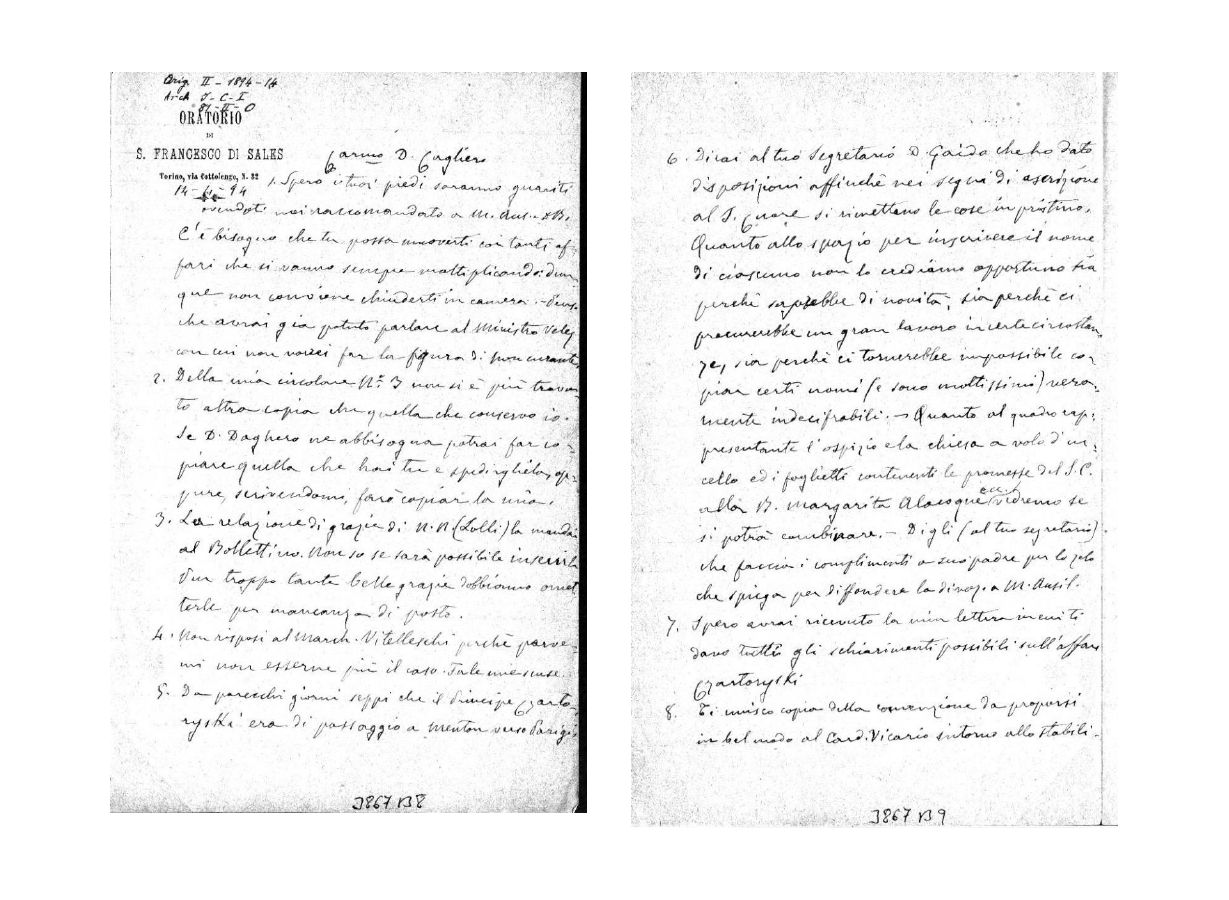 Orig. II - 1894 - 14
Arch J - C - I
ORATORIO
DI
S. FRANCESCO DI SALES
Torino, via Cottolengo, N. 32
14 - 4 - 94
Carmo D. Cagliero
1. Spero i tuoi piedi saranno guariti
avendoti noi raccomandato a M. Aus. e DB.
C'è bisogno che tu possa muoverti coi tanti af-
fari che si vanno sempre moltiplicando: dun-
que non conviene chiuderti in camera. - Penso
che avrai già potuto parlare al Ministro Velez
con cui non vorrei far la figura di noncurante
2. Della mia circolare N.° 3 non si è più trova-
to altra copia che quella che conservo io.
Se D. Daghero ne abbisogna potrai far co-
piare quella che hai tu e spedirgliela, op-
pure, scrivendomi, farò copiar la mia.
3. La relazione di grazie di N. N. (Lolli) la mandai
al Bollettino. Non so se sarà possibile inserirla
Pur troppo tante belle grazie dobbiamo omet
terle per mancanza di posto.
4. Non risposi al March. Vitelleschi perchè parve-
mi non esserne più il caso. Fa le mie scuse.
5. Da parecchi giorni seppi che il Principe Czarto-
ryski era di passaggio a Menton verso Parigi
J867 B8
6. Dirai al tuo Segretario D. Gaido che ho dato
disposizioni affinchè nei segni di ascrizione
al S. Cuore si rimettano le cose in pristino.
Quanto allo spazio per inscrivere il nome
di ciascuno non lo crediamo opportuno sia
perchè saprebbe di novità; sia perchè ci
procurerebbe un gran lavoro in certe circostan
ze, sia perchè ci tornerebbe impossibile co-
piar certi nomi (e sono moltissimi) vera-
mente indecifrabili. - Quanto al quadro rap-
presentante l'ospizio e la chiesa a volo d'uc-
cello ed i foglietti contenenti le promesse del S.C.
alla B. Margarita Alacoque ecc. vedremo se
si potrà combinare. - Digli (al tuo segretario)
che faccia i complimenti a suo padre per lo zelo
che spiega per diffondere la divoz. a M. Ausil.
7. Spero avrai ricevuto la mia lettera in cui ti
davo tutti gli schiarimenti possibili sull'affare
Czartoryski
8. Ti unisco copia della convenzione da proporsi
in bel modo al Card. Vicario intorno allo stabili-
J867 B9